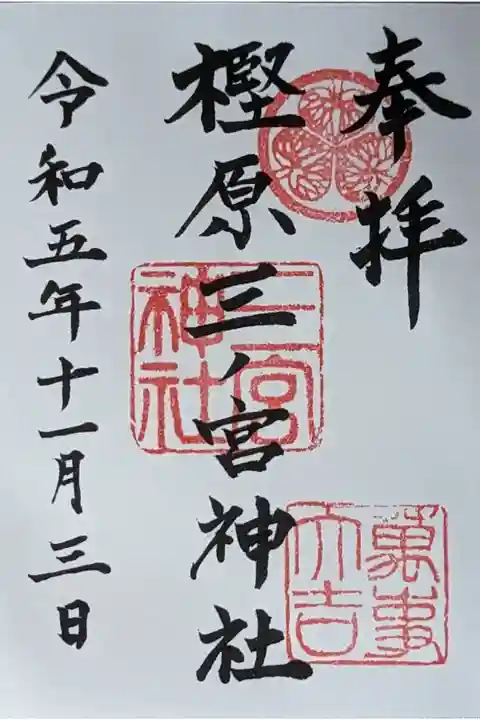 奉拝
樫原三ノ宮神社
三宮
神社
萬事
大吉
令和五年十一月三日